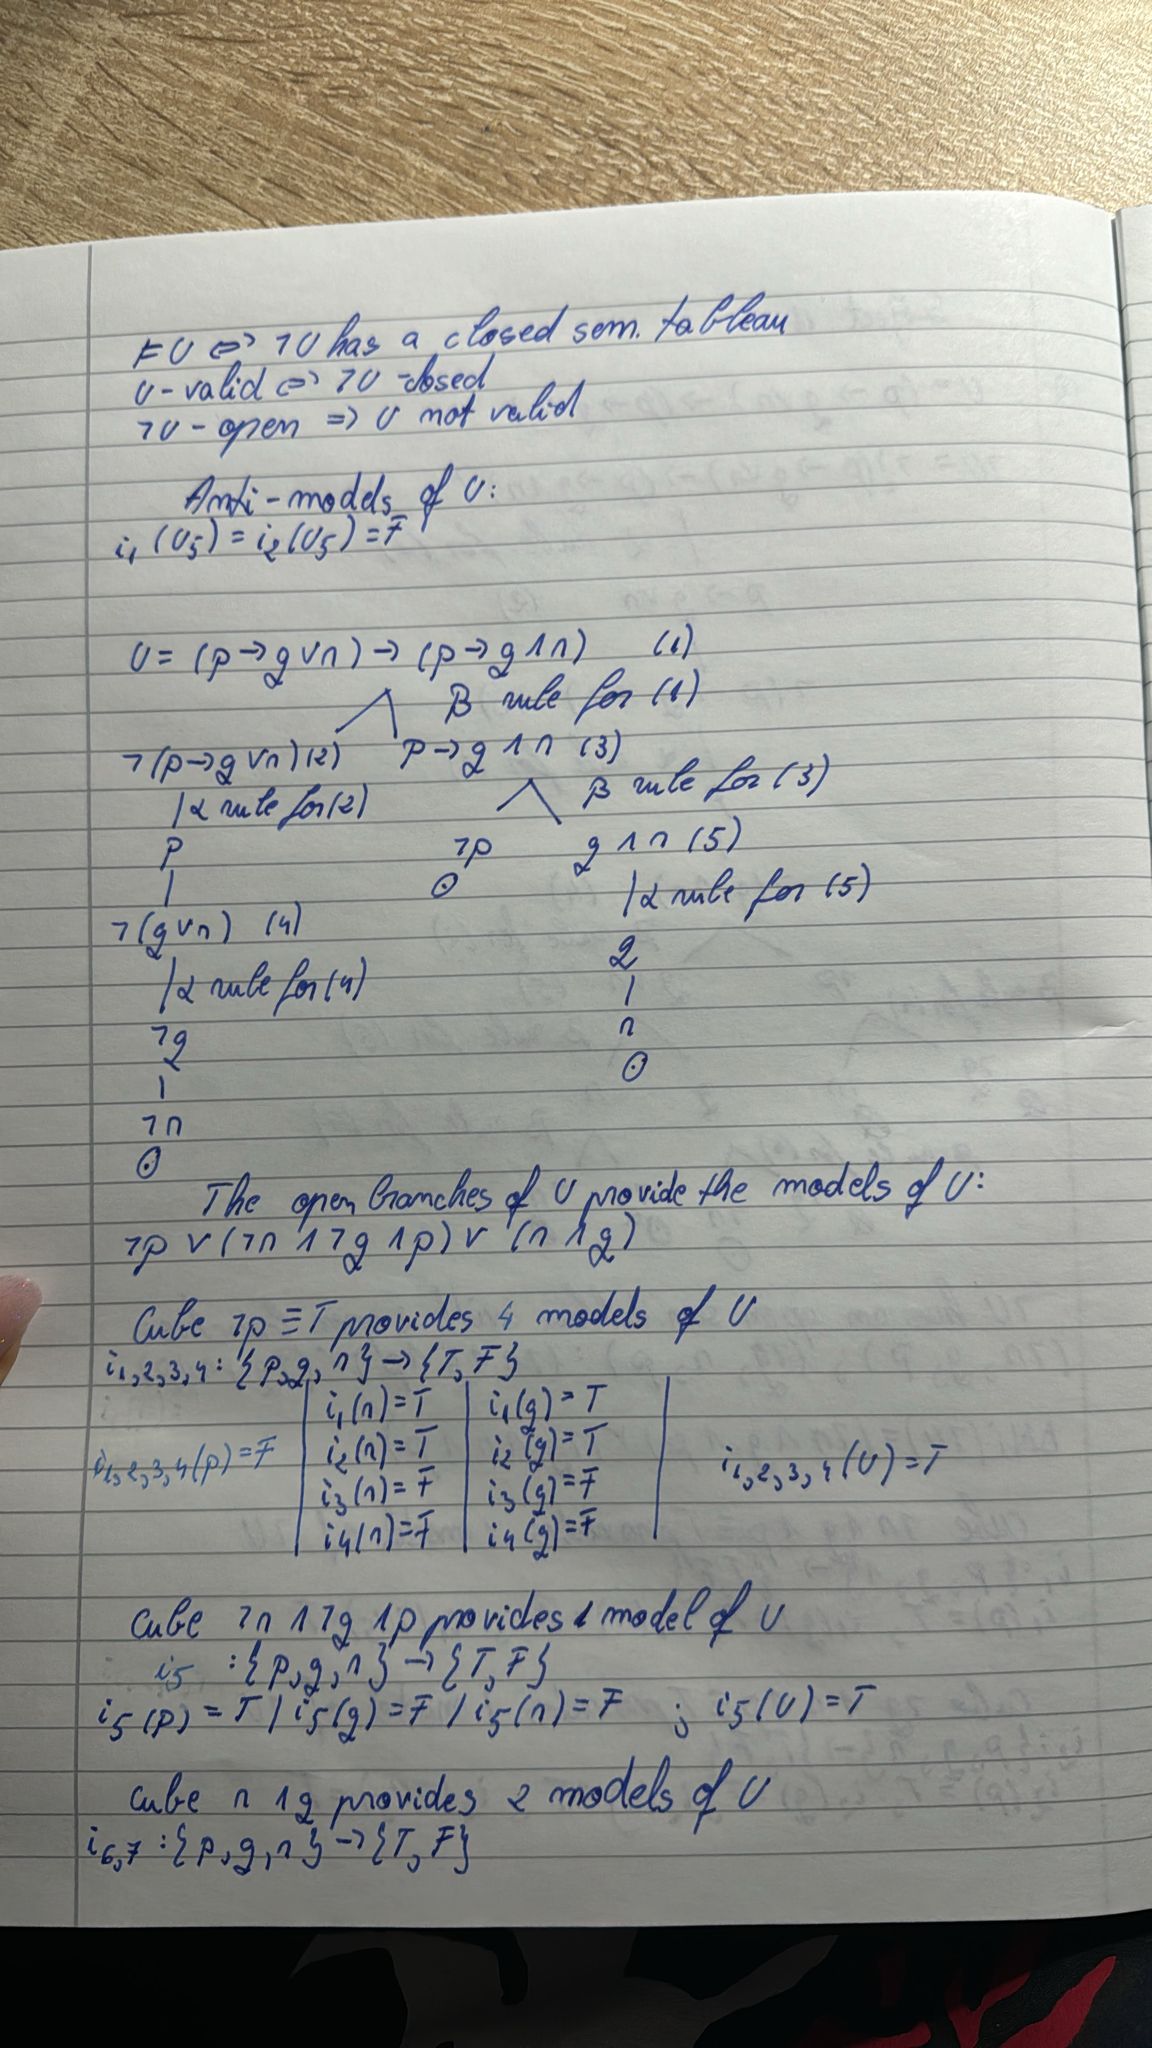 ⊨U ⇔ ¬U has a closed sem. tableau
U-valid ⇔ ¬U-closed
¬U-open ⇒ U not valid
Anti-models of U:
i₁(U₅) = i₂(U₅) = F
U = (p→q∨r) → (p→q∧r) (1)
β rule for (1)
¬(p→q∨r) (2) p→q∧r (3)
| α rule for (2) β rule for (3)
p ¬p q∧r (5)
| ⊙ | α rule for (5)
¬(q∨r) (4) q
| α rule for (4) |
¬q r
| ⊙
¬r
⊙
The open branches of U provide the models of U:
¬p ∨ (¬r ∧ ¬q ∧ p) ∨ (r ∧ q)
Cube ¬p ≡ T provides 4 models of U
i₁,₂,₃,₄ : {p,q,r} → {T,F}
i₁(r)=T | i₁(q)=T
i₁,₂,₃,₄(p)=F | i₂(r)=T | i₂(q)=T | i₁,₂,₃,₄(U)=T
i₃(r)=F | i₃(q)=F
i₄(r)=F | i₄(q)=F
Cube ¬r ∧ ¬q ∧ p provides 1 model of U
i₅ : {p,q,r} → {T,F}
i₅(p) = T / i₅(q) = F / i₅(r) = F ; i₅(U) = T
Cube r ∧ q provides 2 models of U
i₆,₇ : {p,q,r} → {T,F}